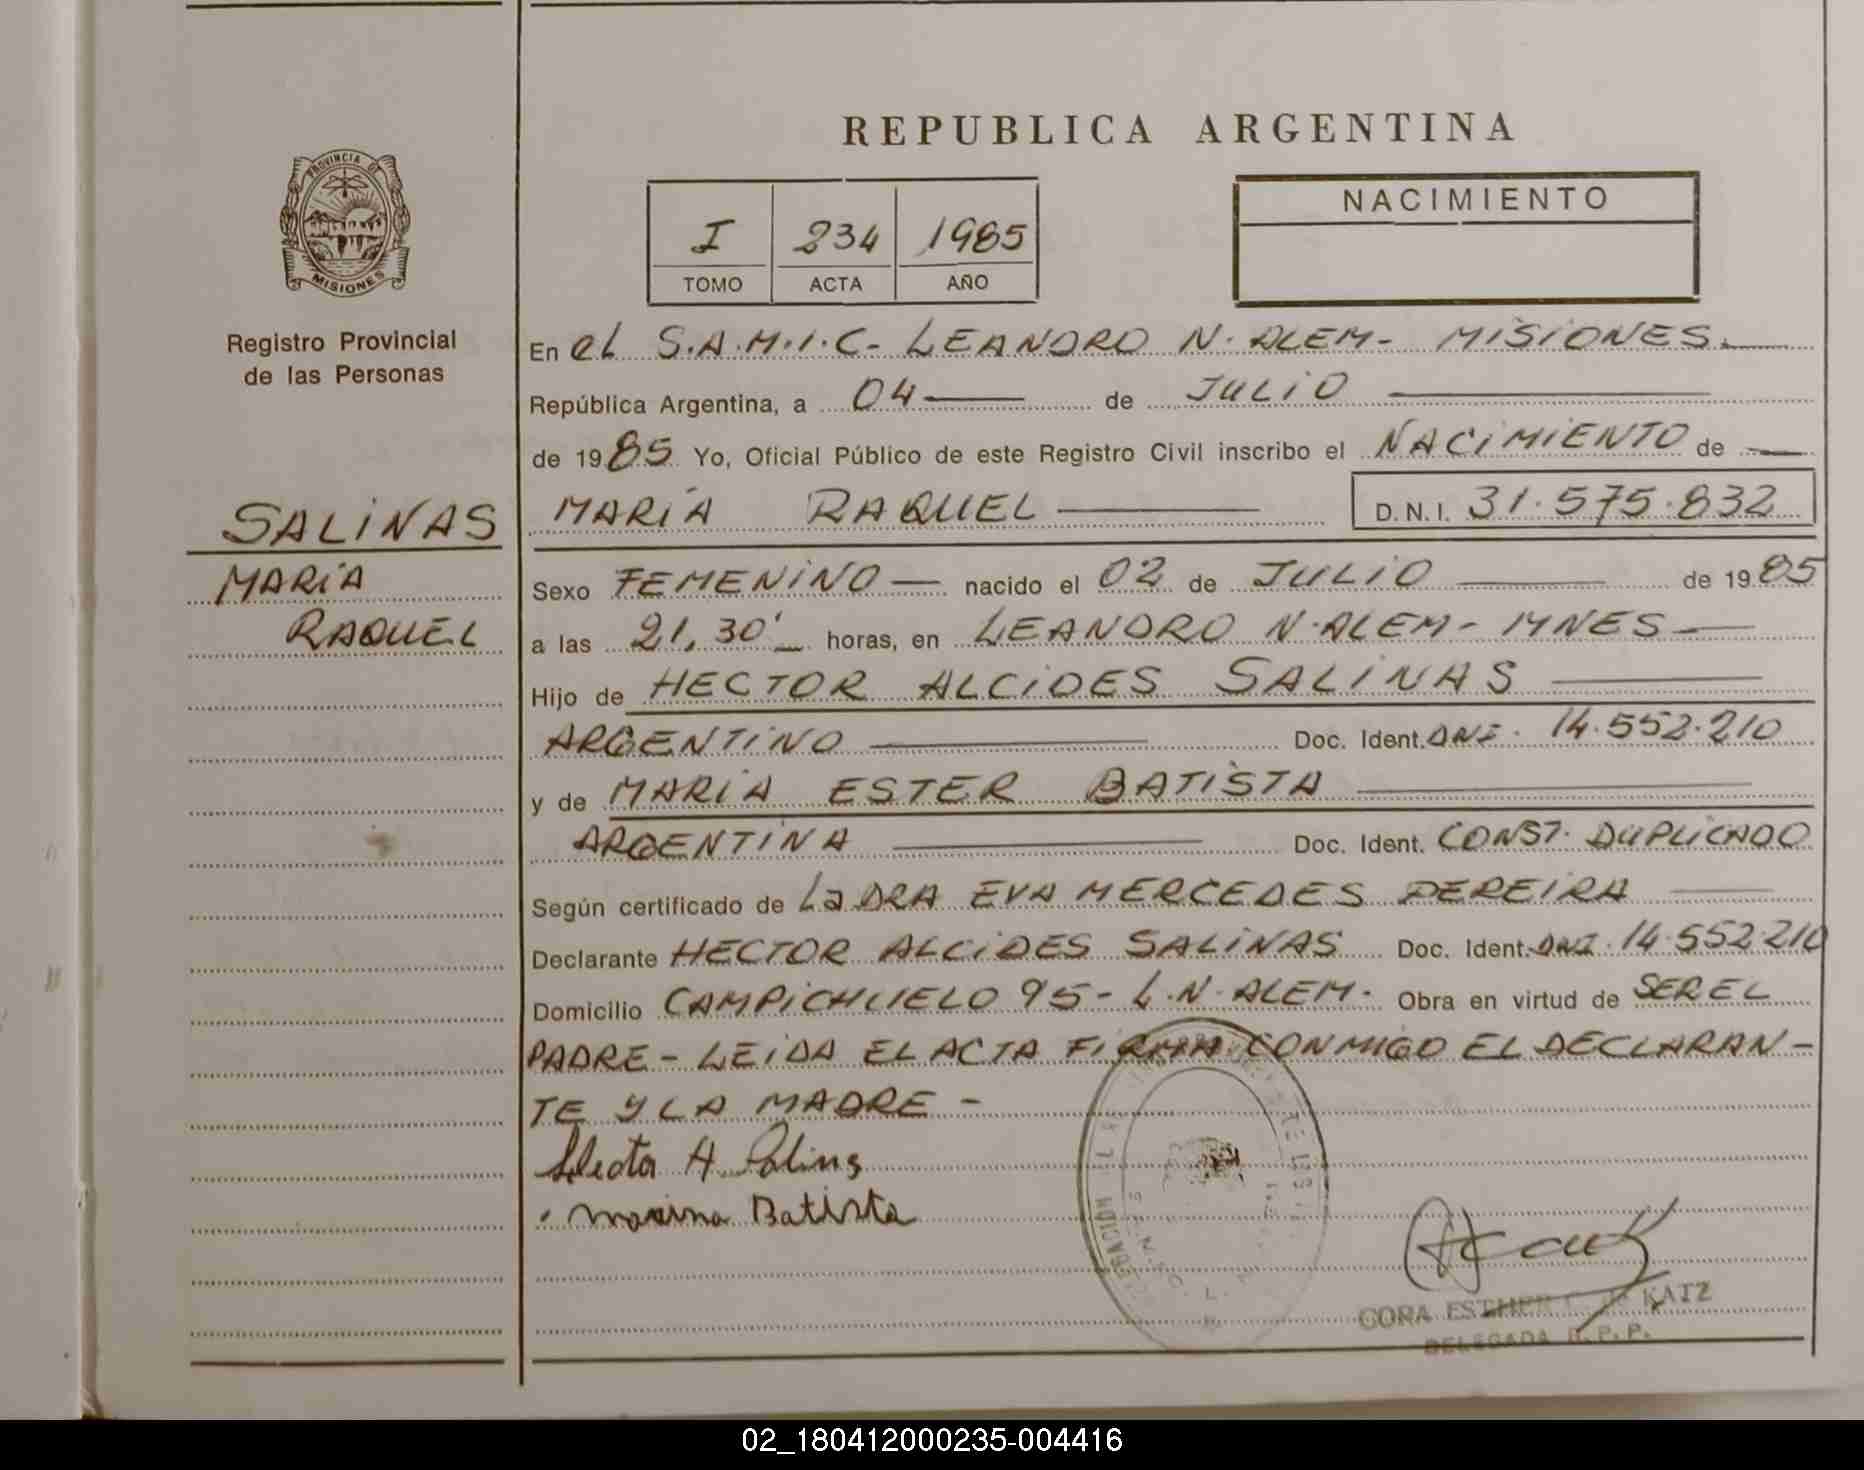 REPUBLICA ARGENTINA
PROVINCIA DE
MISIONES
Registro Provincial
de las Personas
I 234 1985
TOMO ACTA AÑO
NACIMIENTO
En el S.A.M.I.C- LEANDRO N. ALEM- MISIONES.
República Argentina, a 04 de JULIO
de 1985 Yo, Oficial Público de este Registro Civil inscribo el NACIMIENTO de
SALINAS
MARÍA RAQUEL D.N.I. 31.575.832
MARÍA
RAQUEL
Sexo FEMENINO nacido el 02 de JULIO de 1985
a las 21,30' horas, en LEANDRO N. ALEM- MNES-
Hijo de HECTOR ALCIDES SALINAS
ARGENTINO Doc. Ident. DNI. 14.552.210
y de MARÍA ESTER BATISTA
ARGENTINA Doc. Ident. CONST. DUPLICADO
Según certificado de La DRA EVA MERCEDES PEREIRA
Declarante HECTOR ALCIDES SALINAS Doc. Ident. DNI. 14.552.210
Domicilio CAMPICHUELO 95- L.N. ALEM. Obra en virtud de SER EL
PADRE- LEIDA EL ACTA FIRMA CONMIGO EL DECLARAN-
TE Y LA MADRE-
Hector A Salinas
Batista
CORA ESTHER KATZ
DELEGADA R.P.P.
02_180412000235-004416